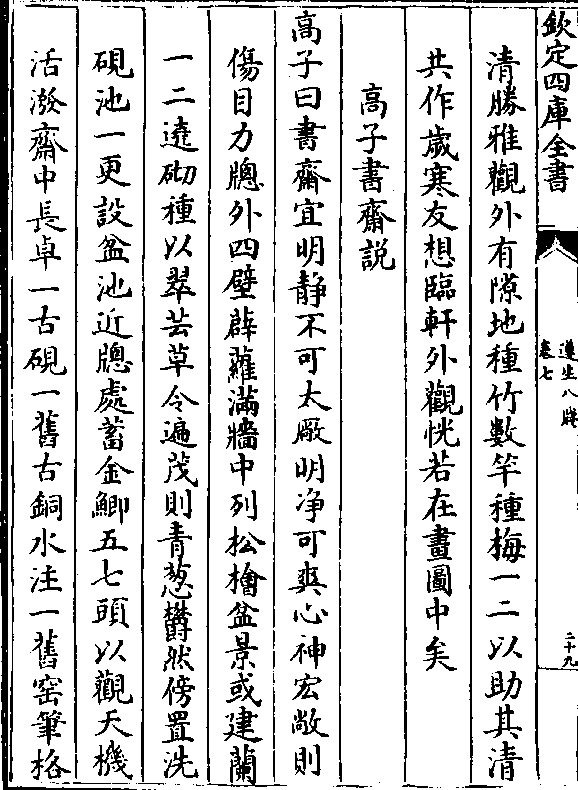 欽定四庫全書
遵生八牋
卷七
二十九
清勝雅觀外有隙地種竹數竿種梅一二以助其清
共作歲寒友想臨軒外觀恍若在畫圖中矣
高子書齋説
高子曰書齋宜明静不可太厰明净可爽心神宏敞則
傷目力牎外四壁薜蘿滿牆中列松檜盆景或建蘭
一二遶砌種以翠芸草令遍茂則青葱欝然傍置洗
硯池一更設盆池近牎處蓄金鯽五七頭以觀天機
活潑齋中長卓一古硯一舊古銅水注一舊窑筆格